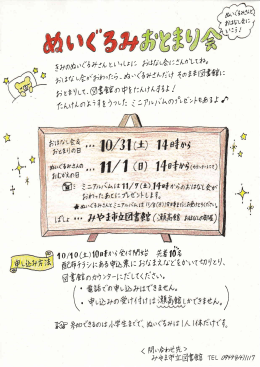 ぬいぐるみと おはなし会に いこう!
ぬいぐるみおとまり会
きみのぬいぐるみさんといっしょに おはなし会にさんかしてね。
おはなし会がおわったら、ぬいぐるみさんだけ そのまま図書館に
おとまりして、図書館の中をたんけんするよ!
たんけんのようすをうつした ミニアルバムのプレゼントもあるよ♪
おはなし会&
おとまりの日 … 10/31(土) 14時から
ぬいぐるみさんの
おむかえの日 … 11/1(日) 14時から
ミニアルバムは 11/7(土) 14時からのおはなし会が
おわったあとにプレゼントします。
ばしょ … みやま市立図書館
申し込み方法
10/10(土) 10時から受け付け開始 先着10名
配布チラシにある申込票に おなまえなどをかいて切りとり、
図書館のカウンターにだしてください。
・電話での申し込みはできません。
・申し込みの受け付けは 瀬高館しかできません。
参加できるのは小学生までで、ぬいぐるみは1人1体だけです。
<問い合わせ先>
みやま市立図書館 TEL